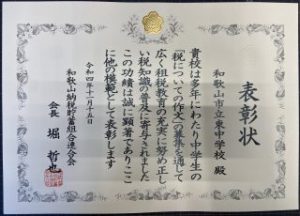 表彰状
和歌山市立東中学校 殿
貴校は多年にわたり中学生の
「税についての作文」の募集を通して
広く租税教育の充実に努め正し
い税知識の普及に寄与されました
この功績は誠に顕著でありここ
に他の模範として表彰します
令和四年十一月十五日
和歌山納税貯蓄組合連合会
会長 堀 哲也